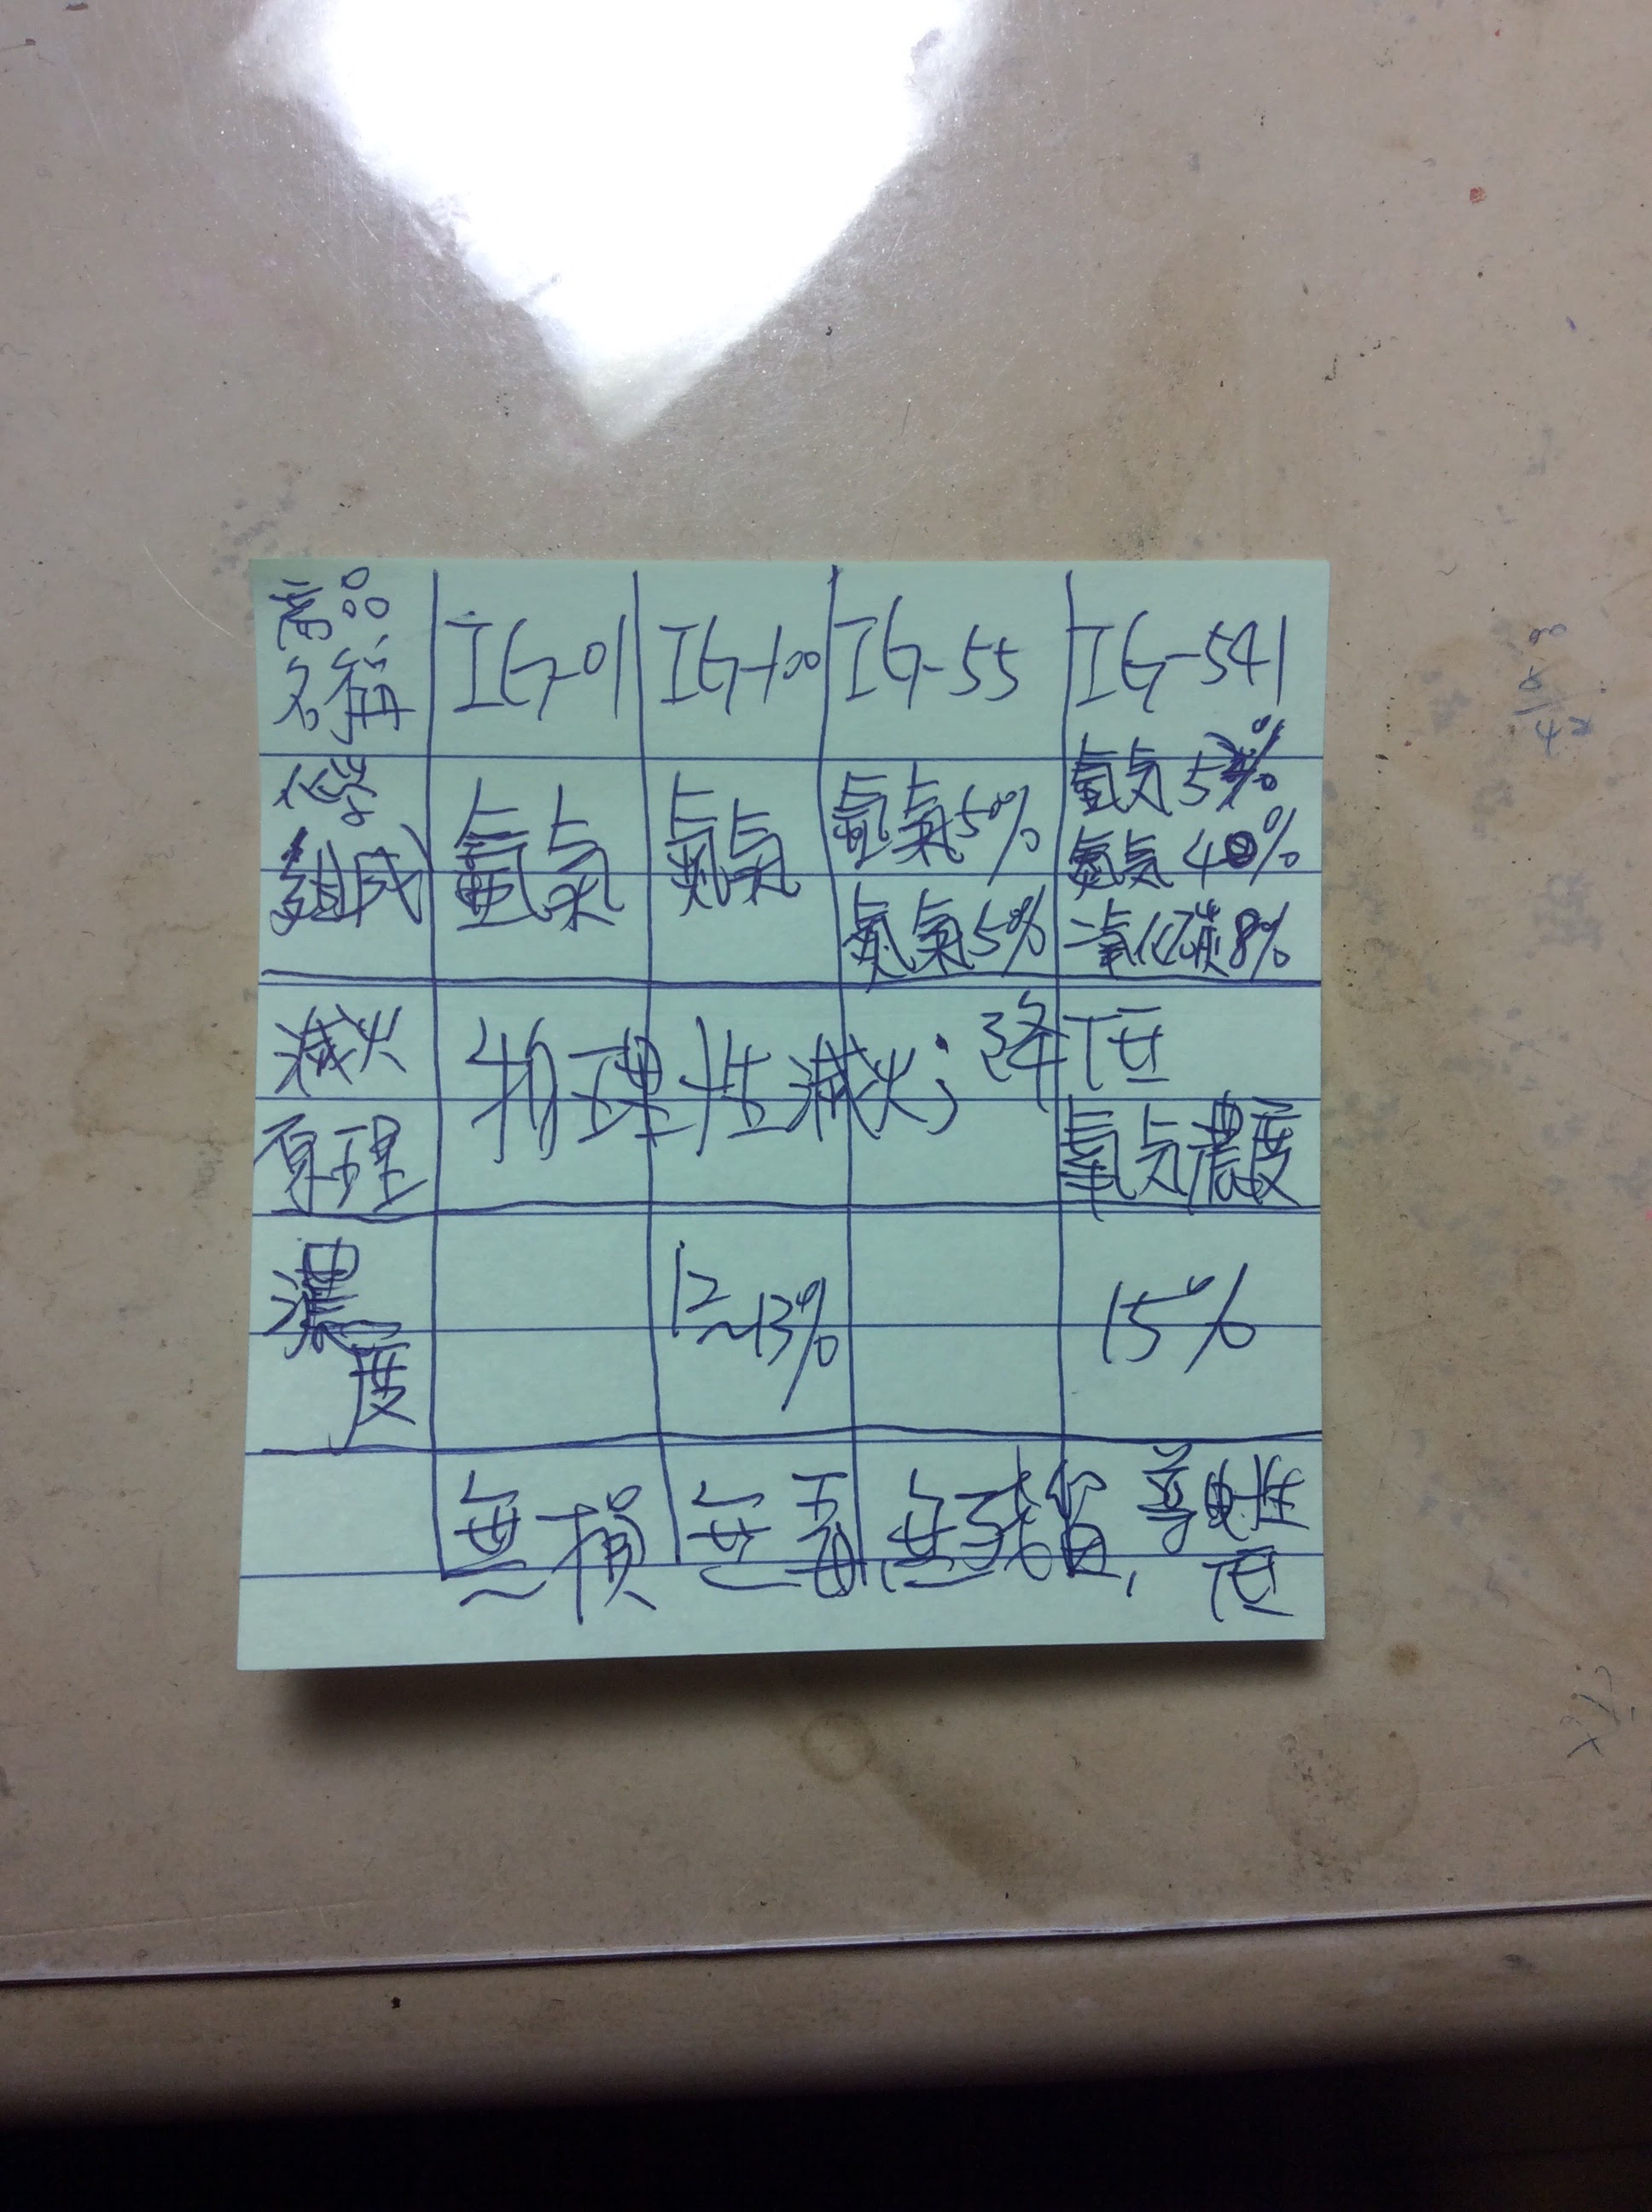 商品名稱 IG-01 IG-100 IG-55 IG-541
化學組成 氬氣 氮氣 氬氣50% 氮氣50% 氬氣5% 氮氣40% 二氧化碳8%
滅火原理 物理性滅火；降低氧氣濃度
濃度 12~13% 15%
無損 無毒 無殘留，導電性低